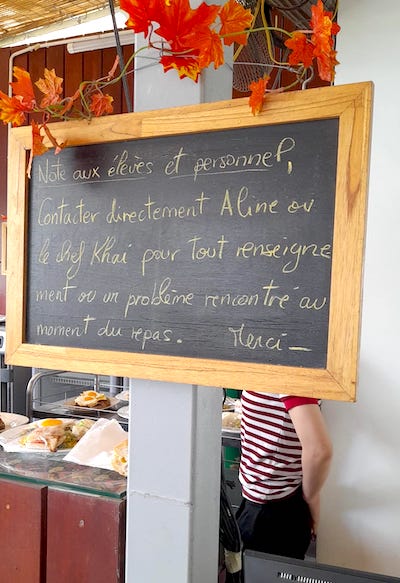 Note aux élèves et personnel,
Contacter directement Aline ou
le chef Khai pour tout renseigne
ment ou un problème rencontré au
moment du repas. Merci_